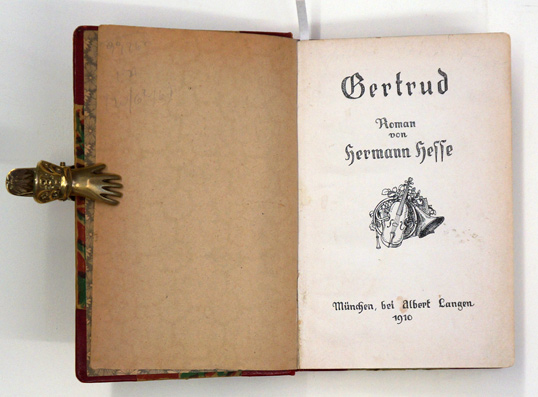 Gertrud
Roman
von
Hermann Hesse
München, bei Albert Langen
1910